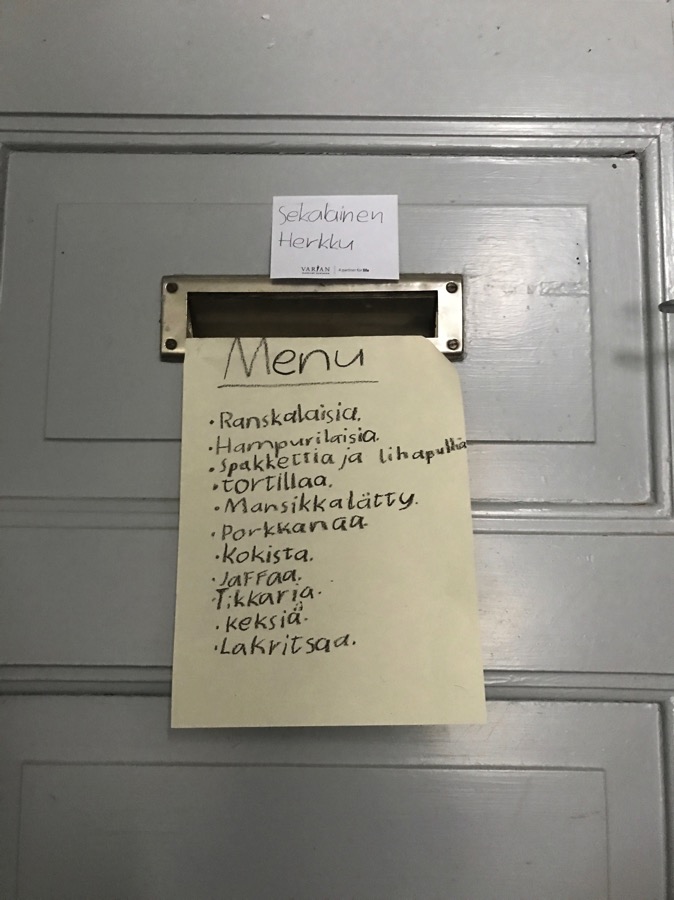 Sekalainen
Herkku
VARIAN
A partner for life
Menu
• Ranskalaisia.
• Hampurilaisia.
• Spakkettia ja lihapullia
• tortillaa.
• Mansikkalätty.
• Porkkanaa
• Kokista.
• Jaffaa.
• Tikkaria.
• keksiä.
• Lakritsaa.